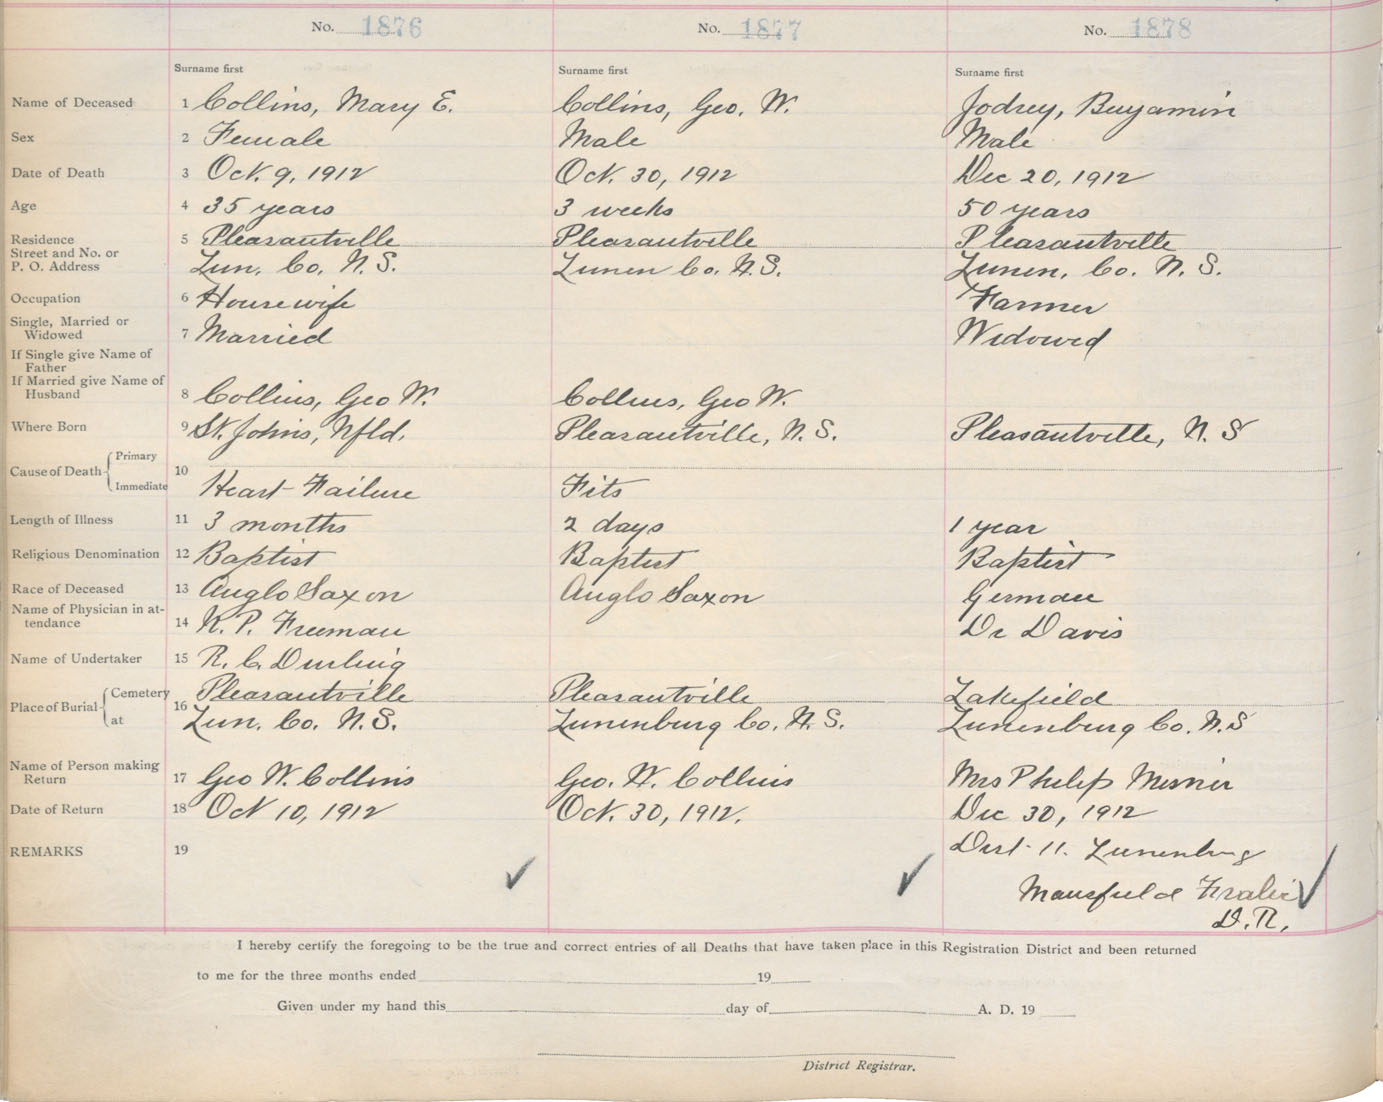 No. 1876 No. 1877 No. 1878
Surname first Surname first Surname first
Name of Deceased 1 Collins, Mary E. Collins, Geo. W. Jodrey, Benjamin
Sex 2 Female Male Male
Date of Death 3 Oct. 9, 1912 Oct. 30, 1912 Dec 20, 1912
Age 4 35 years 3 weeks 50 years
Residence 5 Pleasantville Pleasantville Pleasantville
Street and No. or
P. O. Address Lun. Co. N.S. Lunen Co. N.S. Lunen. Co. N.S.
Occupation 6 Housewife Farmer
Single, Married or
Widowed 7 Married Widowed
If Single give Name of
Father
If Married give Name of
Husband 8 Collins, Geo W. Collins, Geo W.
Where Born 9 St. Johns, Nfld. Pleasantville, N.S. Pleasantville, N.S
Cause of Death Primary 10
Immediate Heart Failure Fits
Length of Illness 11 3 months 2 days 1 year
Religious Denomination 12 Baptist Baptist Baptist
Race of Deceased 13 Anglo Saxon Anglo Saxon German
Name of Physician in at-
tendance 14 K. P. Freeman Dr Davis
Name of Undertaker 15 R. C. Durling
Place of Burial Cemetery 16 Pleasantville Pleasantville Lakefield
at Lun. Co. N.S. Lunenburg Co. N.S. Lunenburg Co. N.S
Name of Person making
Return 17 Geo W. Collins Geo. W. Collins Mrs Philip Mesner
Date of Return 18 Oct 10, 1912 Oct. 30, 1912. Dec 30, 1912
REMARKS 19 Dist 11. Lunenburg
Mansfield Fralic
D.R.
I hereby certify the foregoing to be the true and correct entries of all Deaths that have taken place in this Registration District and been returned
to me for the three months ended 19
Given under my hand this day of A. D. 19
District Registrar.